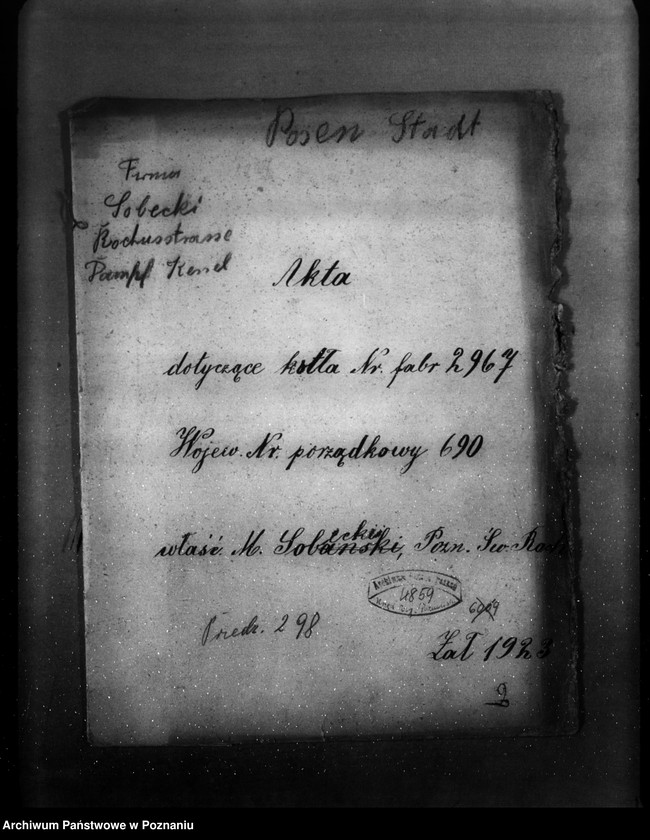 Posen Stadt
Firma
Sobecki
Rochusstrasse
Dampf Kessel
Akta
dotyczące kotła Nr. fabr 2967
Wojew. Nr. porządkowy 690
ecki
właśc. M. Sobański, Pozn. Św. Roch
Archiwum Poznań
4859
6909
Przedr. 298
Zał 1923
2
Archiwum Państwowe w Poznaniu